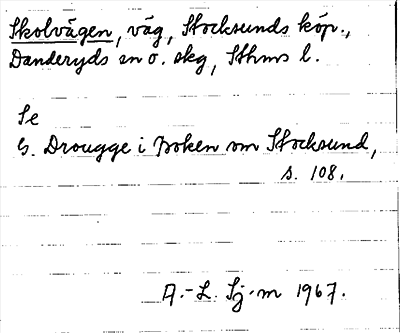 Skolvägen, väg, Stocksunds köp.,
Danderyds sn o. skg, Sthms l.
Se
G. Drougge i Boken om Stocksund,
s. 108.
A.-L. Sj-m 1967.